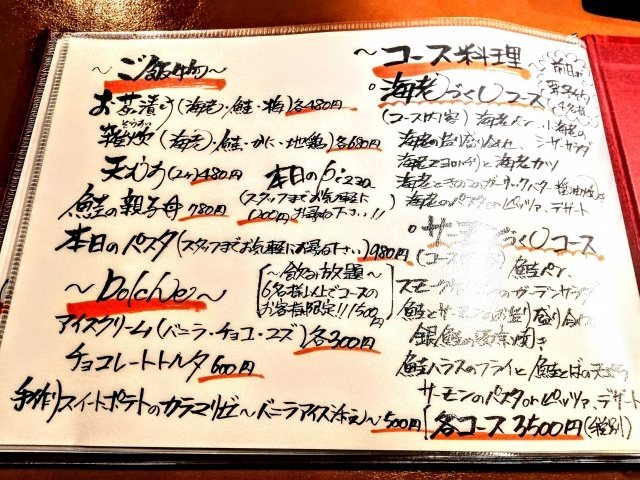 ～ご飯物～
お茶漬け(海老・鮭・梅)各480円
雑炊(海老・鮭・かに・地鶏)各680円
ぞうすい
天むす(2ケ)480円
本日のPizza
(スタッフまでお気軽にお尋ね下さい!!
1200円
鮭の親子丼 780円
本日のパスタ(スタッフまでお気軽にお尋ね下さい)980円
～Dolche～
～飲み放題～
6名様以上でコースの
お客様限定!!1500円
アイスクリーム(バニラ・チョコ・ユズ)各300円
チョコレートトルタ 600円
手作りスイートポテトのカラメリゼ～バニラアイス添え～500円
～コース料理
前日迄
要予約
海老づくしコース
(コース内容) 海老パン
海老の
海老のお造り盛り合わせ
シーザーサラダ
海老と海老カツ
海老ときのこのガーリックバター醤油焼き
海老のパスタorピッツァ、デザート
サーモンづくしコース
(コース
鮭パン
スモーク
のガーデンサラダ
鮭とサーモンのお造り盛り合わせ
銀鮭の
焼き
鮭ハラスのフライと鮭とばの天ぷら
サーモンのパスタorピッツァ、デザート
各コース3500円(税別)